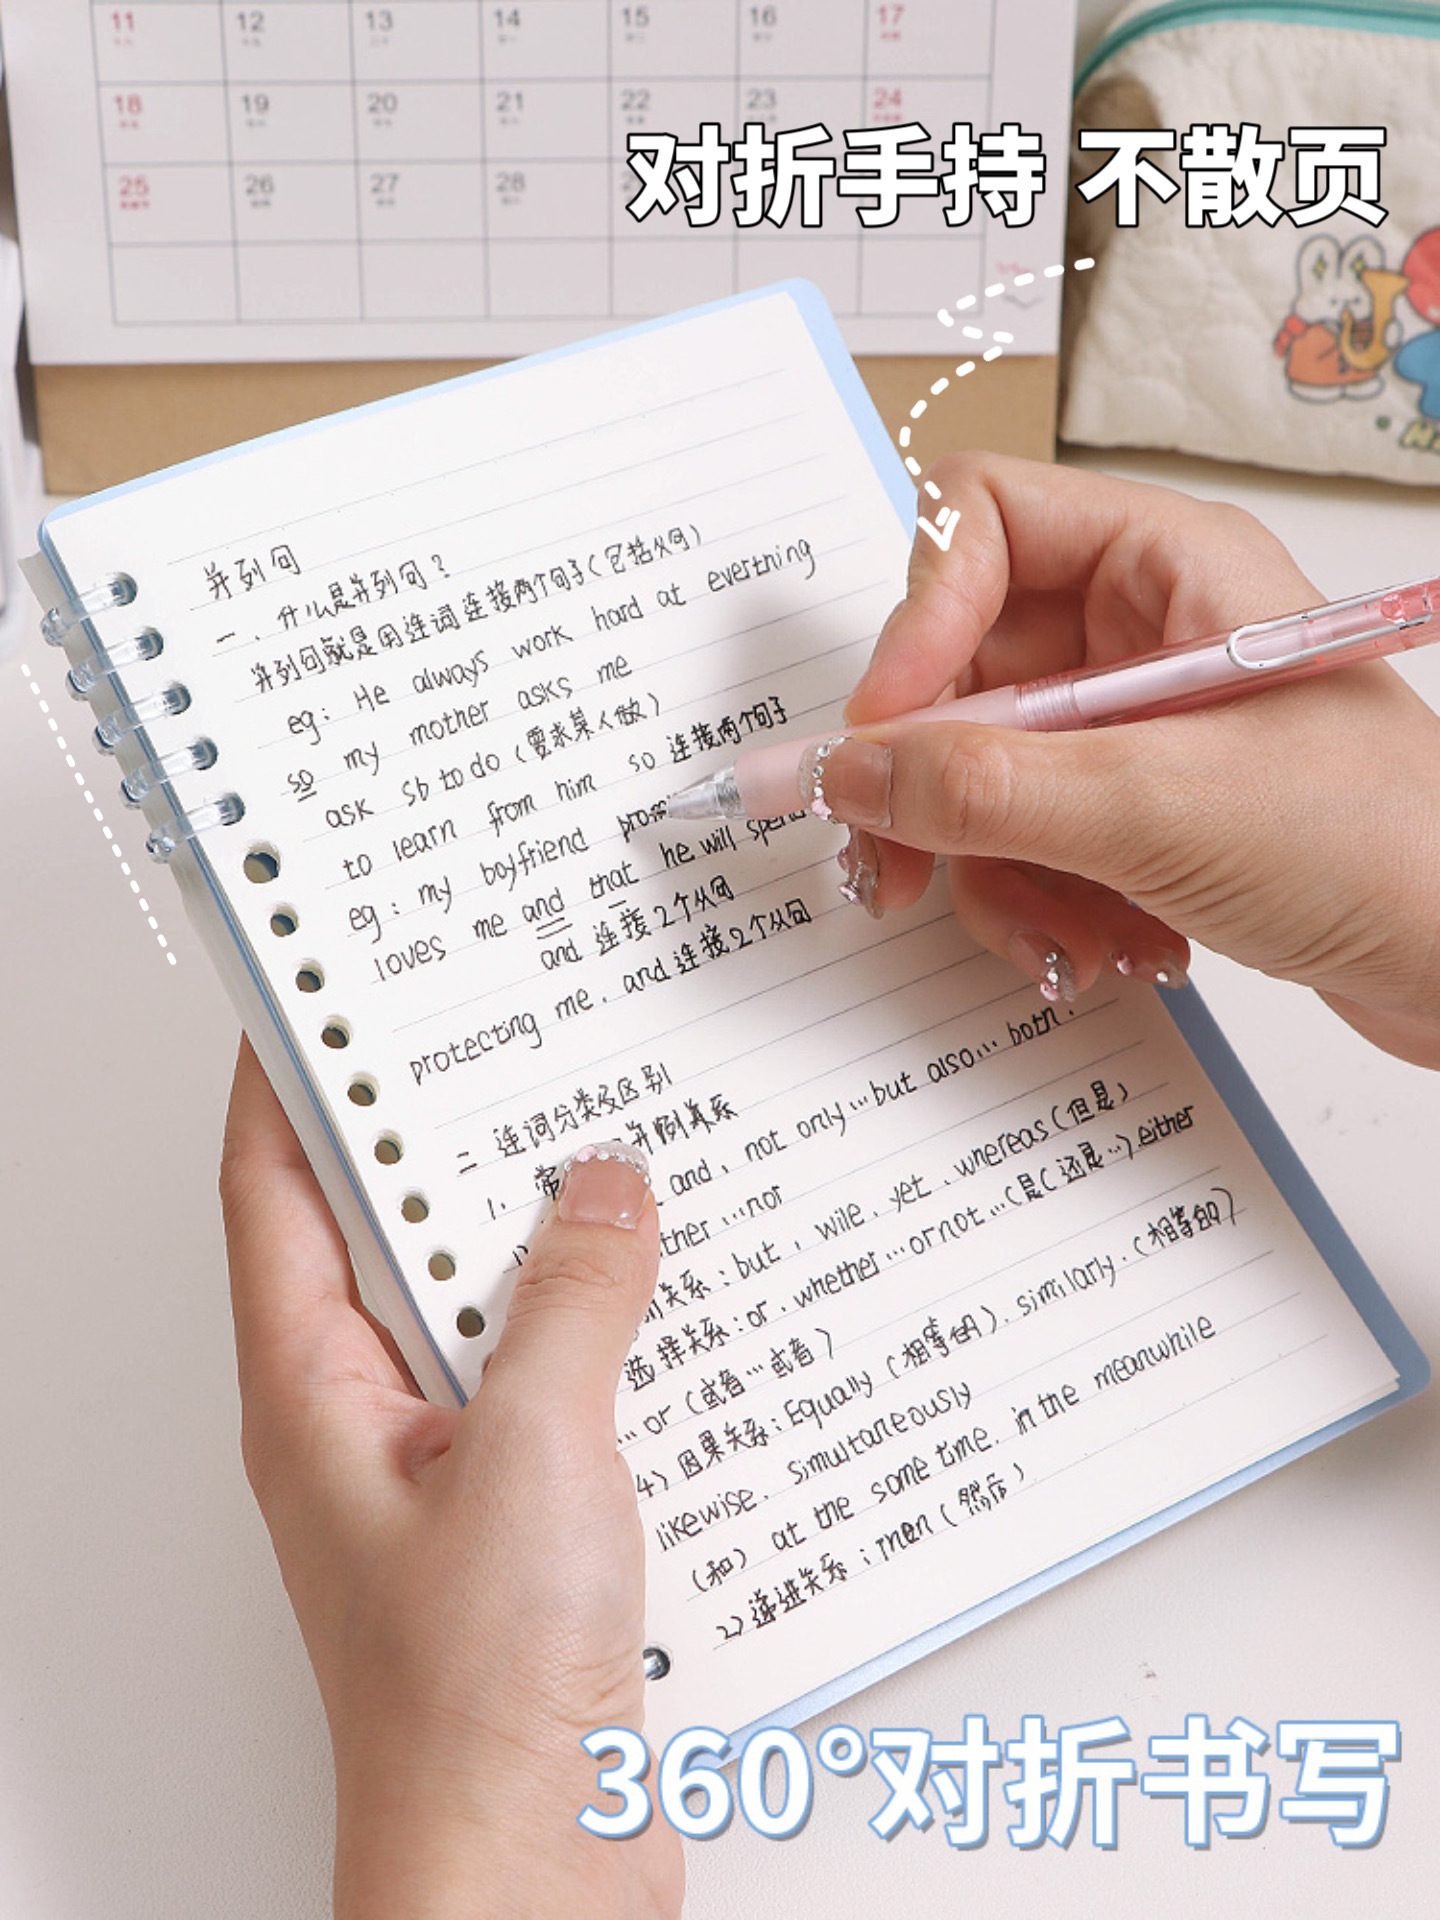 11 12 13 14 15 16 17
18 19 20 21 22 23 24
25 26 27 28
对折手持 不散页
并列句
一、什么是并列句？
并列句就是用连词连接两个句子(包括从句)
eg: He always work hard at everthing
so my mother asks me
ask sb to do (要求某人做)
to learn from him so 连接两个句子
eg: my boyfriend
loves me and that he will
and 连接2个从句
protecting me. and 连接2个从句
二 连词分类及区别
1. 常 并列关系
and、not only…but also… both.
ther …nor
关系: but, wile、yet、whereas(但是)
选择关系: or、whether…or not…(是(还是…) either
… or (或者…或者)
4) 因果关系: Equally (相等的). similarly. (相等的)
likewise. simultaneously
(和) at the some time. in the meanwhile
2) 递进关系: Then (然后)
360°对折书写